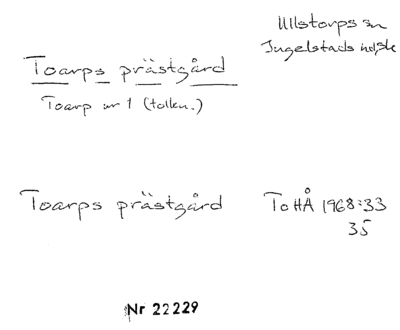 Ullstorps sn
Ingelstads hd, Sk
Toarps prästgård
Toarp nr 1 (tolkn.)
Toarps prästgård ToHÅ 1968:33
35
Nr 22229